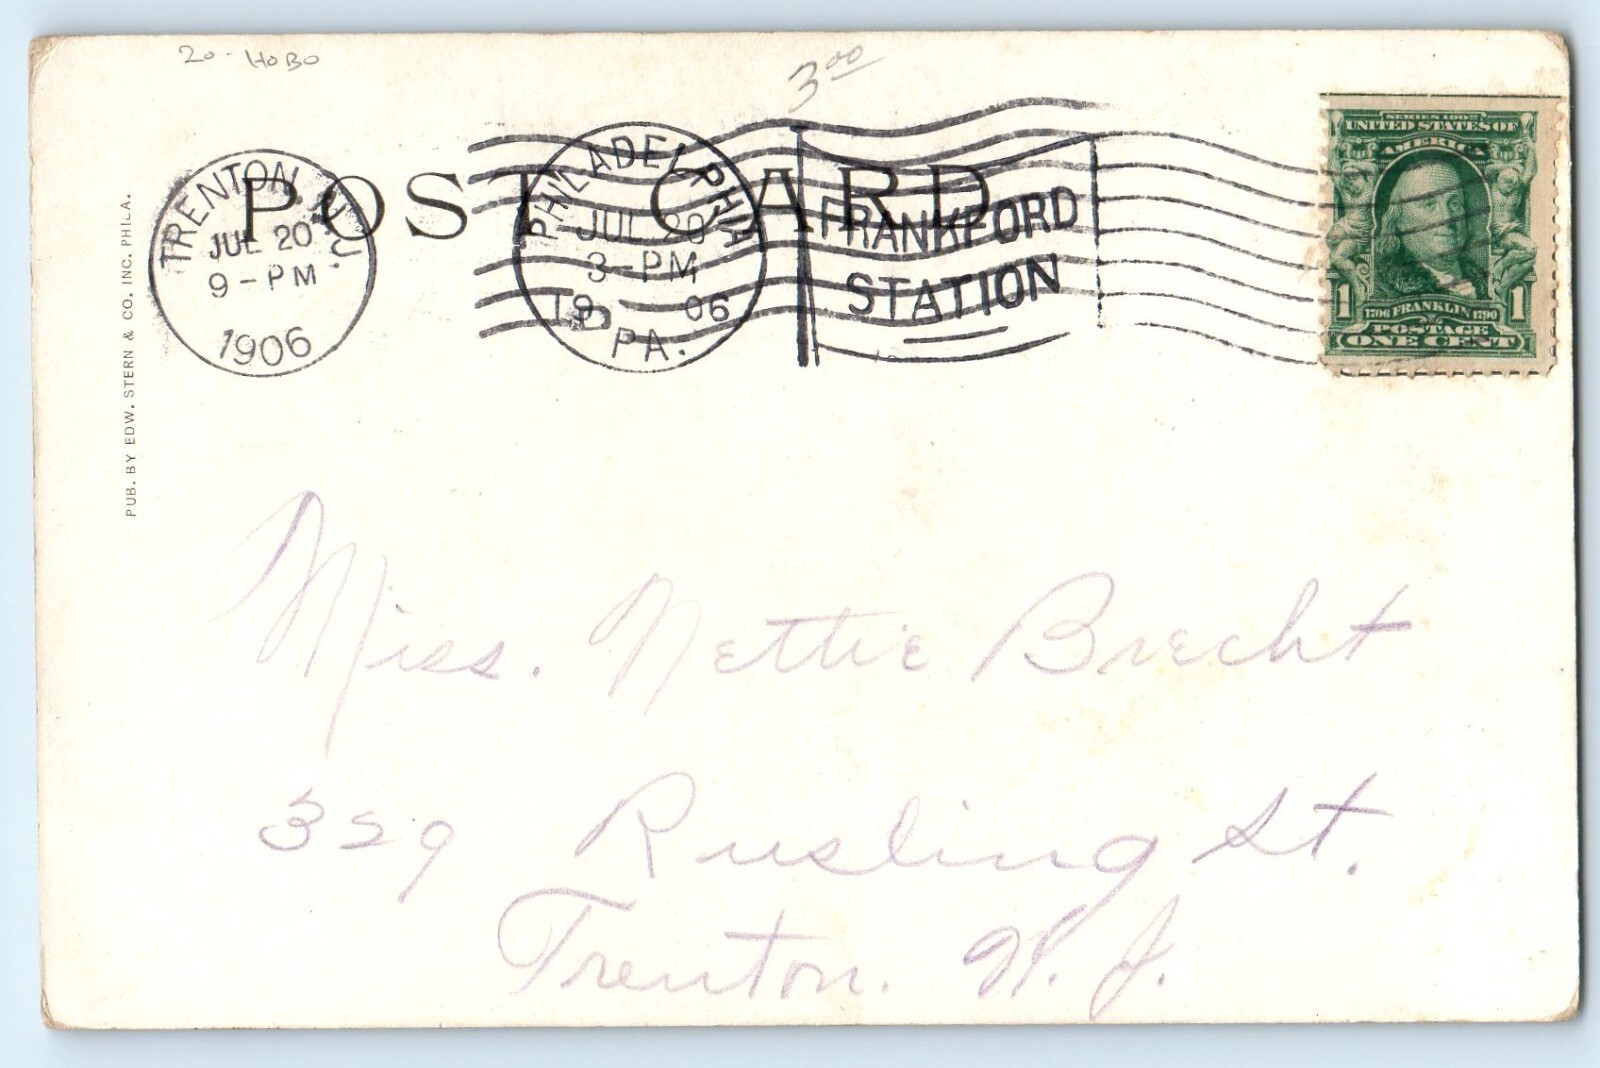 20- HOBO
3.00
POST CARD
TRENTON, N.J.
JUL 20
9-PM
1906
PHILADELPHIA
JUL 20
3-PM
19 06
PA.
FRANKFORD
STATION
SERIES 1902
UNITED STATES OF
AMERICA
1 1
1706 FRANKLIN 1790
POSTAGE
ONE CENT
PUB. BY EDW. STERN & CO. INC. PHILA.
Miss. Nettie Brecht
329 Rusling St.
Trenton. N. J.